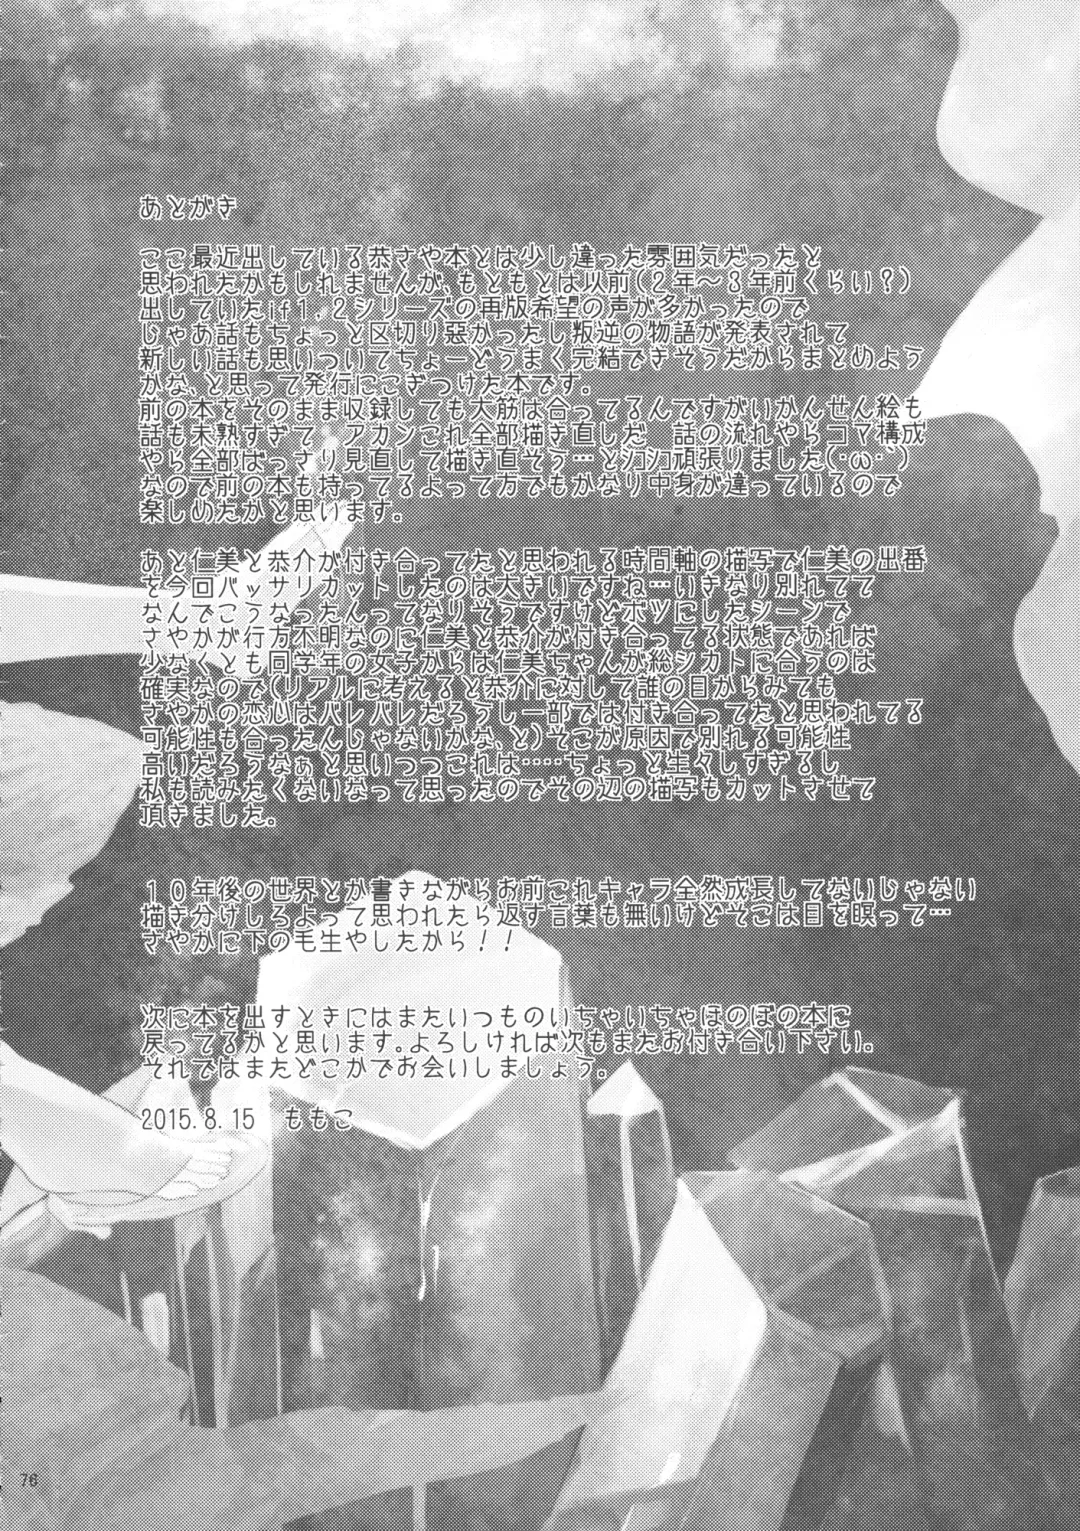 あとがき
ここ最近出している恭さや本とは少し違った雰囲気だったと
思われたかもしれませんが、もともとは以前(2年〜3年前くらい?)
出していたif1、2シリーズの再版希望の声が多かったので
じゃあ話もちょっと区切り悪かったし叛逆の物語が発表されて
新しい話も思いついてちょーどうまく完結できそうだからまとめよう
かな、と思って発行にこぎつけた本です。
前の本をそのまま収録しても大筋は合ってるんですがいかんせん絵も
話も未熟すぎて、アカンこれ全部描き直しだ、話の流れやらコマ構成
やら全部ばっさり見直して描き直そう…とｼｺｼｺ頑張りました(･ω･`)
なので前の本も持ってるよって方でもかなり中身が違っているので
楽しめたかと思います。
あと仁美と恭介が付き合ってたと思われる時間軸の描写で仁美の出番
を今回バッサリカットしたのは大きいですね…いきなり別れてて
なんでこうなったんってなりそうですけどボツにしたシーンで
さやかが行方不明なのに仁美と恭介が付き合ってる状態であれば
少なくとも同学年の女子からは仁美ちゃんが総シカトに合うのは
確実なので(リアルに考えると恭介に対して誰の目からみても
さやかの恋心はバレバレだろうし一部では付き合ってたと思われてる
可能性も合ったんじゃないかな、と)そこが原因で別れる可能性
高いだろうなぁと思いつつこれは‥‥ちょっと生々しすぎるし
私も読みたくないなって思ったのでその辺の描写もカットさせて
頂きました。
10年後の世界とか書きながらお前これキャラ全然成長してないじゃない
描き分けしろよって思われたら返す言葉も無いけどそこは目を瞑って…
さやかに下の毛生やしたから!!
次に本を出すときにはまたいつものいちゃいちゃほのぼの本に
戻ってるかと思います。よろしければ次もまたお付き合い下さい。
それではまたどこかでお会いしましょう。
2015.8.15 ももこ
76